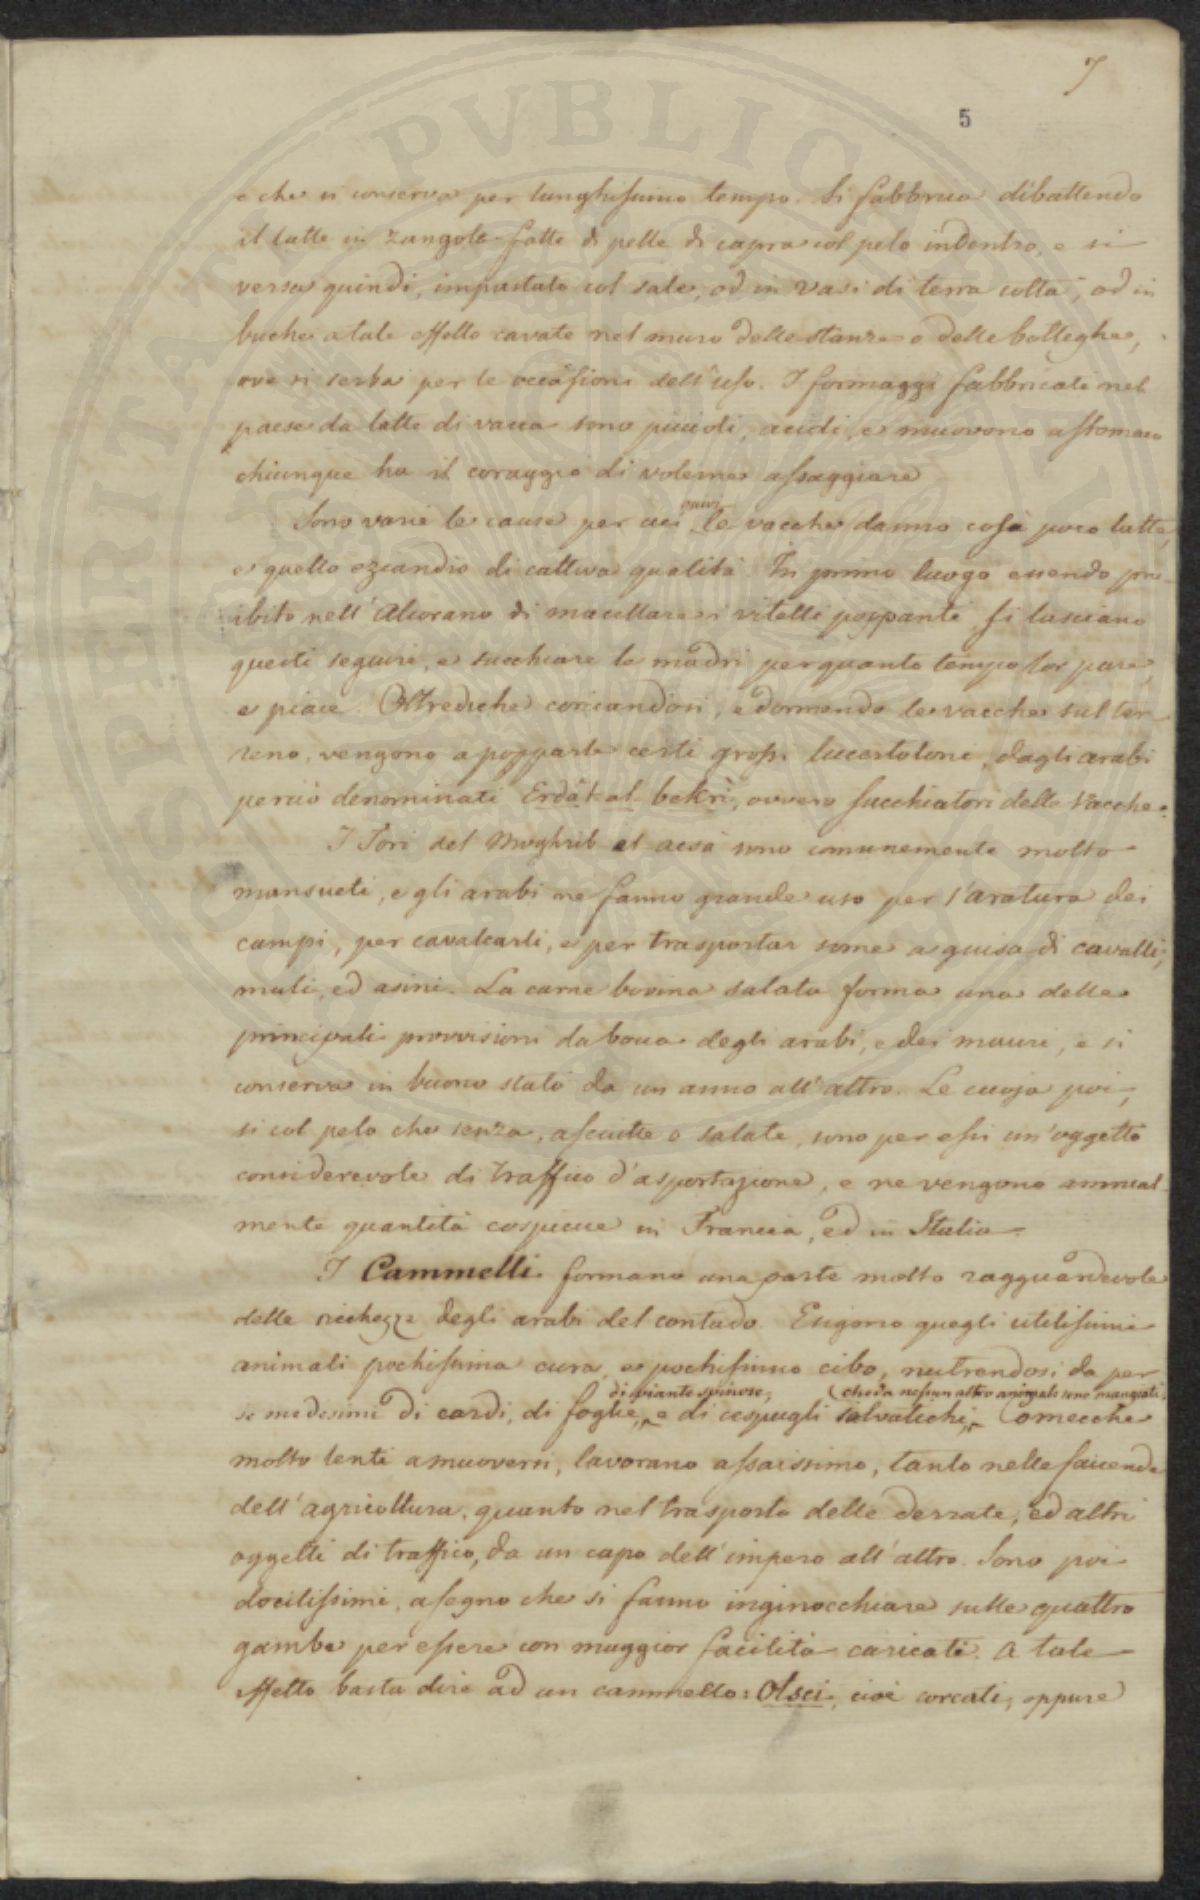 7
5
e che si conserva per lunghissimo tempo. Si fabbrica dibattendo
il latte in zangole fatte di pelle di capra col pelo indentro, e si
versa quindi, impastato col sale, od in vasi di terra cotta, od in
buche a tale effetto cavate nel muro delle stanze o delle botteghe,
ove si serba per le occasioni dell'uso. I formaggi fabbricati nel
paese da latte di vacca sono piccioli, acidi, e muovono a stomaco
chiunque ha il coraggio di volerne assaggiare
quivi
Sono varie le cause per cui le vacche danno così poco latte,
e quello eziandio di cattiva qualità. In primo luogo essendo pro-
ibito nell'Alcorano di macellare i vitelli poppanti, si lasciano
questi seguire, e succhiare le madri per quanto tempo lor pare,
e piace. Oltredichè coricandosi, e dormendo le vacche sul ter-
reno, vengono a popparle certi grossi lucertoloni, dagli arabi
perciò denominati Erdât al bekrì, ovvero succhiatori delle Vacche.
I Tori del Moghrib el acsà sono comunemente molto
mansueti, e gli arabi ne fanno grande uso per l'aratura dei
campi, per cavalcarli, e per trasportar some a guisa di cavalli,
muli, ed asini. La carne bovina salata forma una delle
principali provvisioni da bocca degli arabi, e dei mauri, e si
conserva in buono stato da un anno all'altro. Le cuoja poi,
sì col pelo che senza, asciutte o salate, sono per essi un'oggetto
considerevole di traffico d'asportazione, e ne vengono annual-
mente quantità cospicue in Francia, ed in Italia.
I Cammelli formano una parte molto ragguardevole
delle ricchezze degli arabi del contado. Esigono quegli utilissimi
animali pochissima cura, e pochissimo cibo, nutrendosi da per
di piante spinose, (che da nessun altro animale sono mangiati
se medesimi di cardi, di foglie, e di cespugli salvatichi, Comecchè
molto lenti a muoversi, lavorano assaissimo, tanto nelle faccende
dell'agricoltura, quanto nel trasporto delle derrate, ed altri
oggetti di traffico, da un capo dell'impero all'altro. Sono poi
docilissimi, a segno che si fanno inginocchiare sulle quattro
gambe per essere con maggior facilità caricati. A tale
effetto basta dire ad un cammello: Olsci, cioè corcati, oppure
SPERITATI PVBLICAE